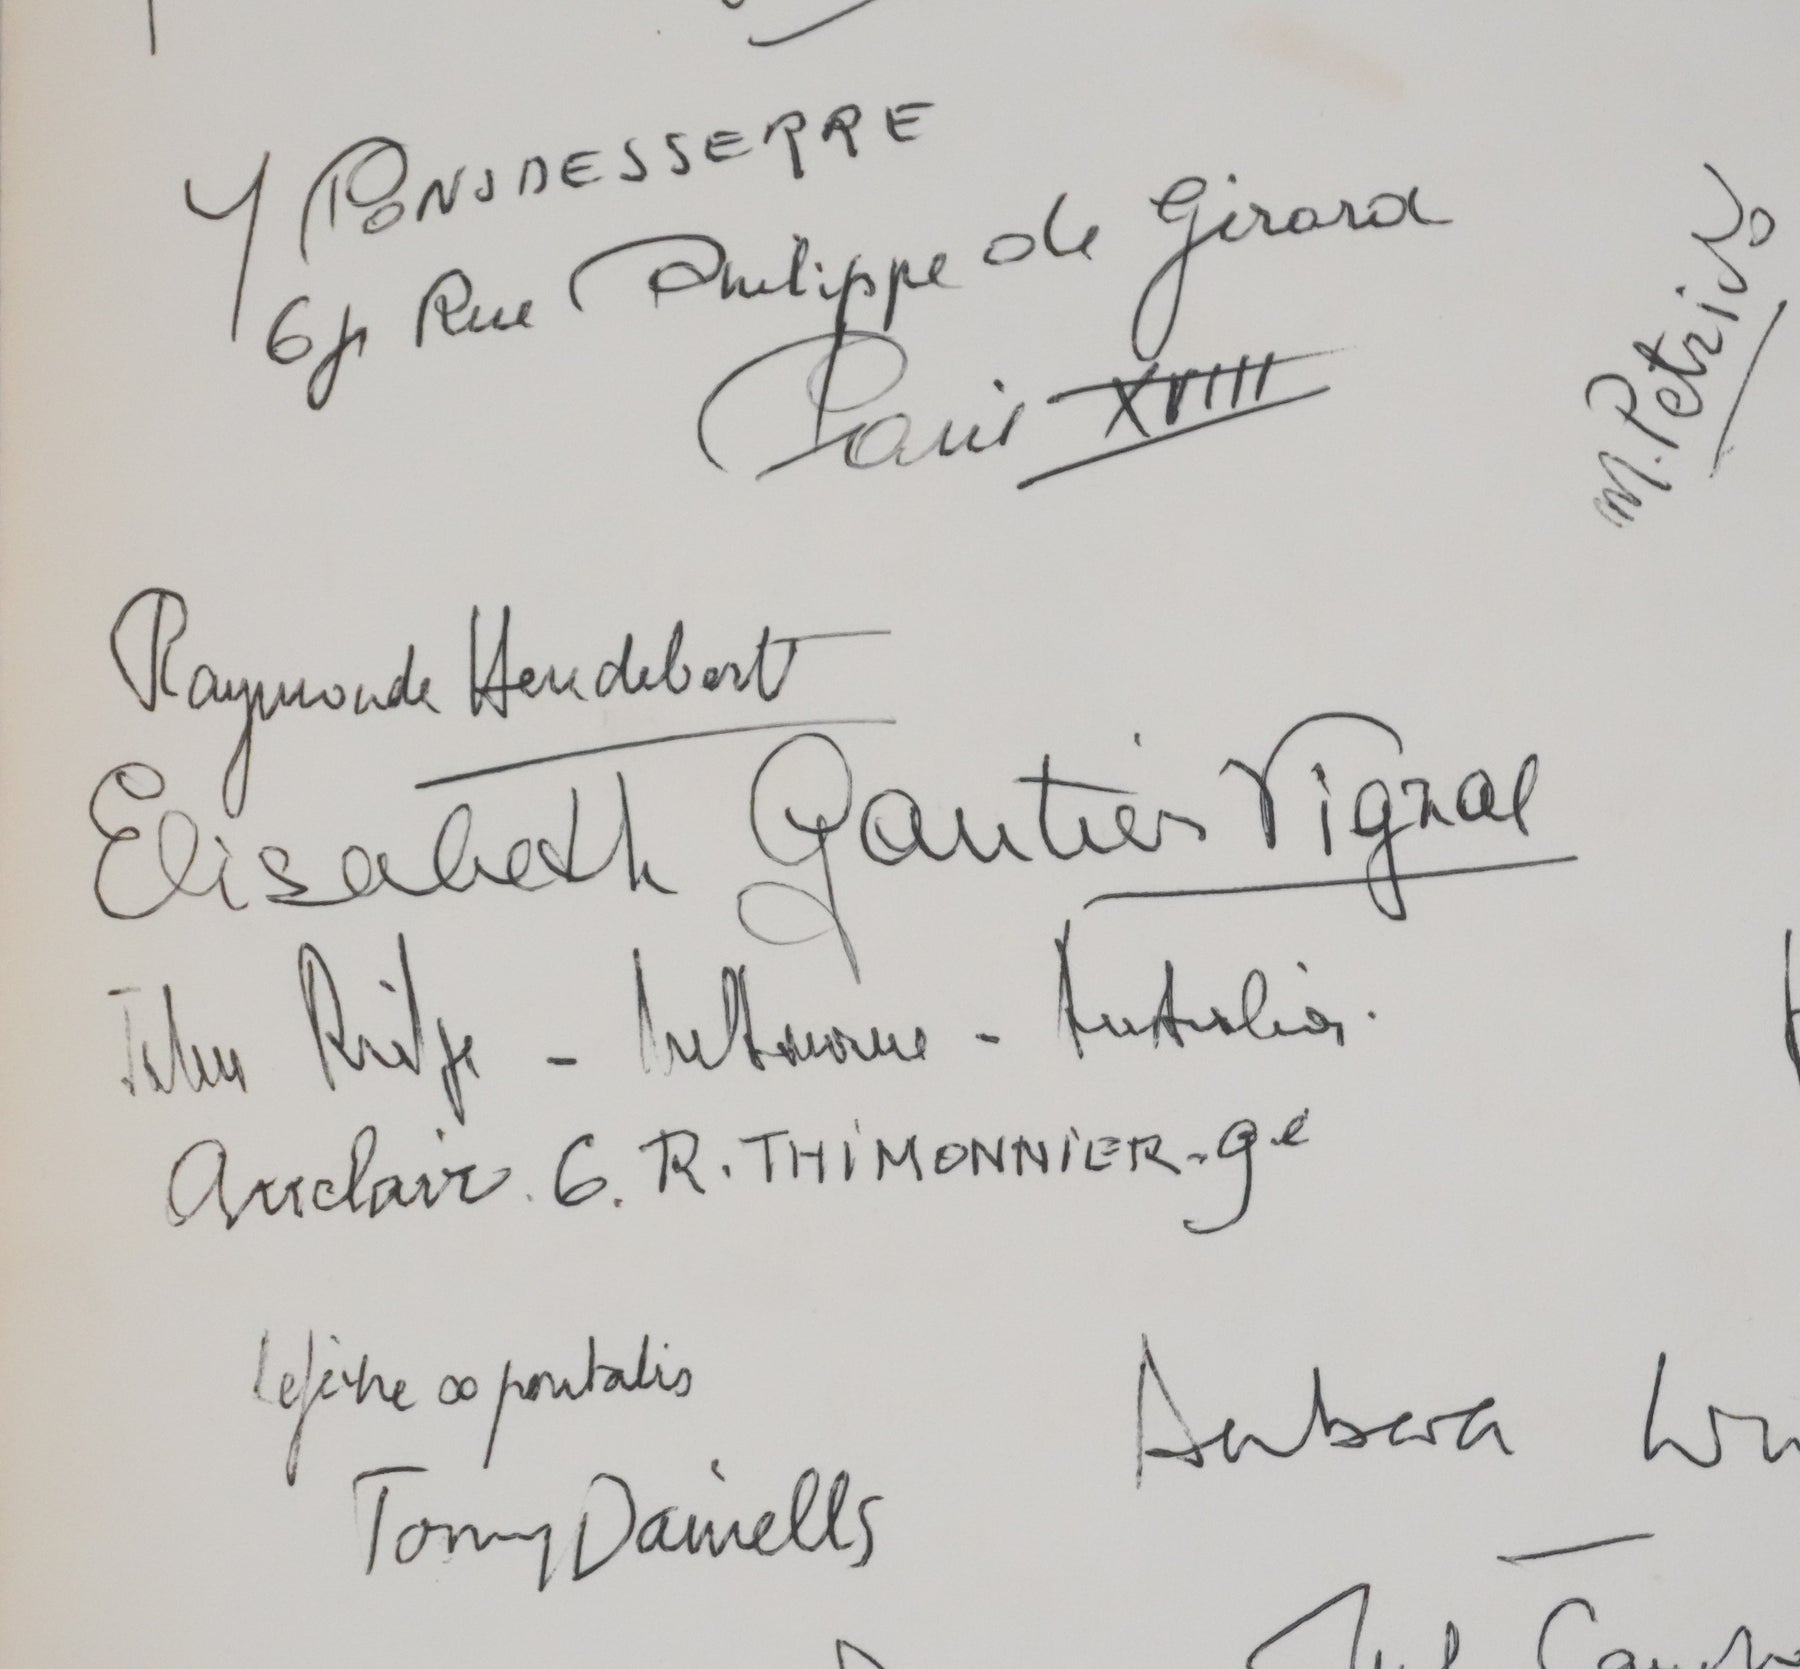 Y PONSDESSERRE
Rue Philippe de Girard
Paris XVIII
M. Petrivo
Raymonde Heudebert
Elisabeth Gautier Vignal
John Ridge - Melbourne - Australia.
Auclair. 6. R. THIMONNIER - 9e
Lefèvre pontalis
Tony Daniells
Barbara